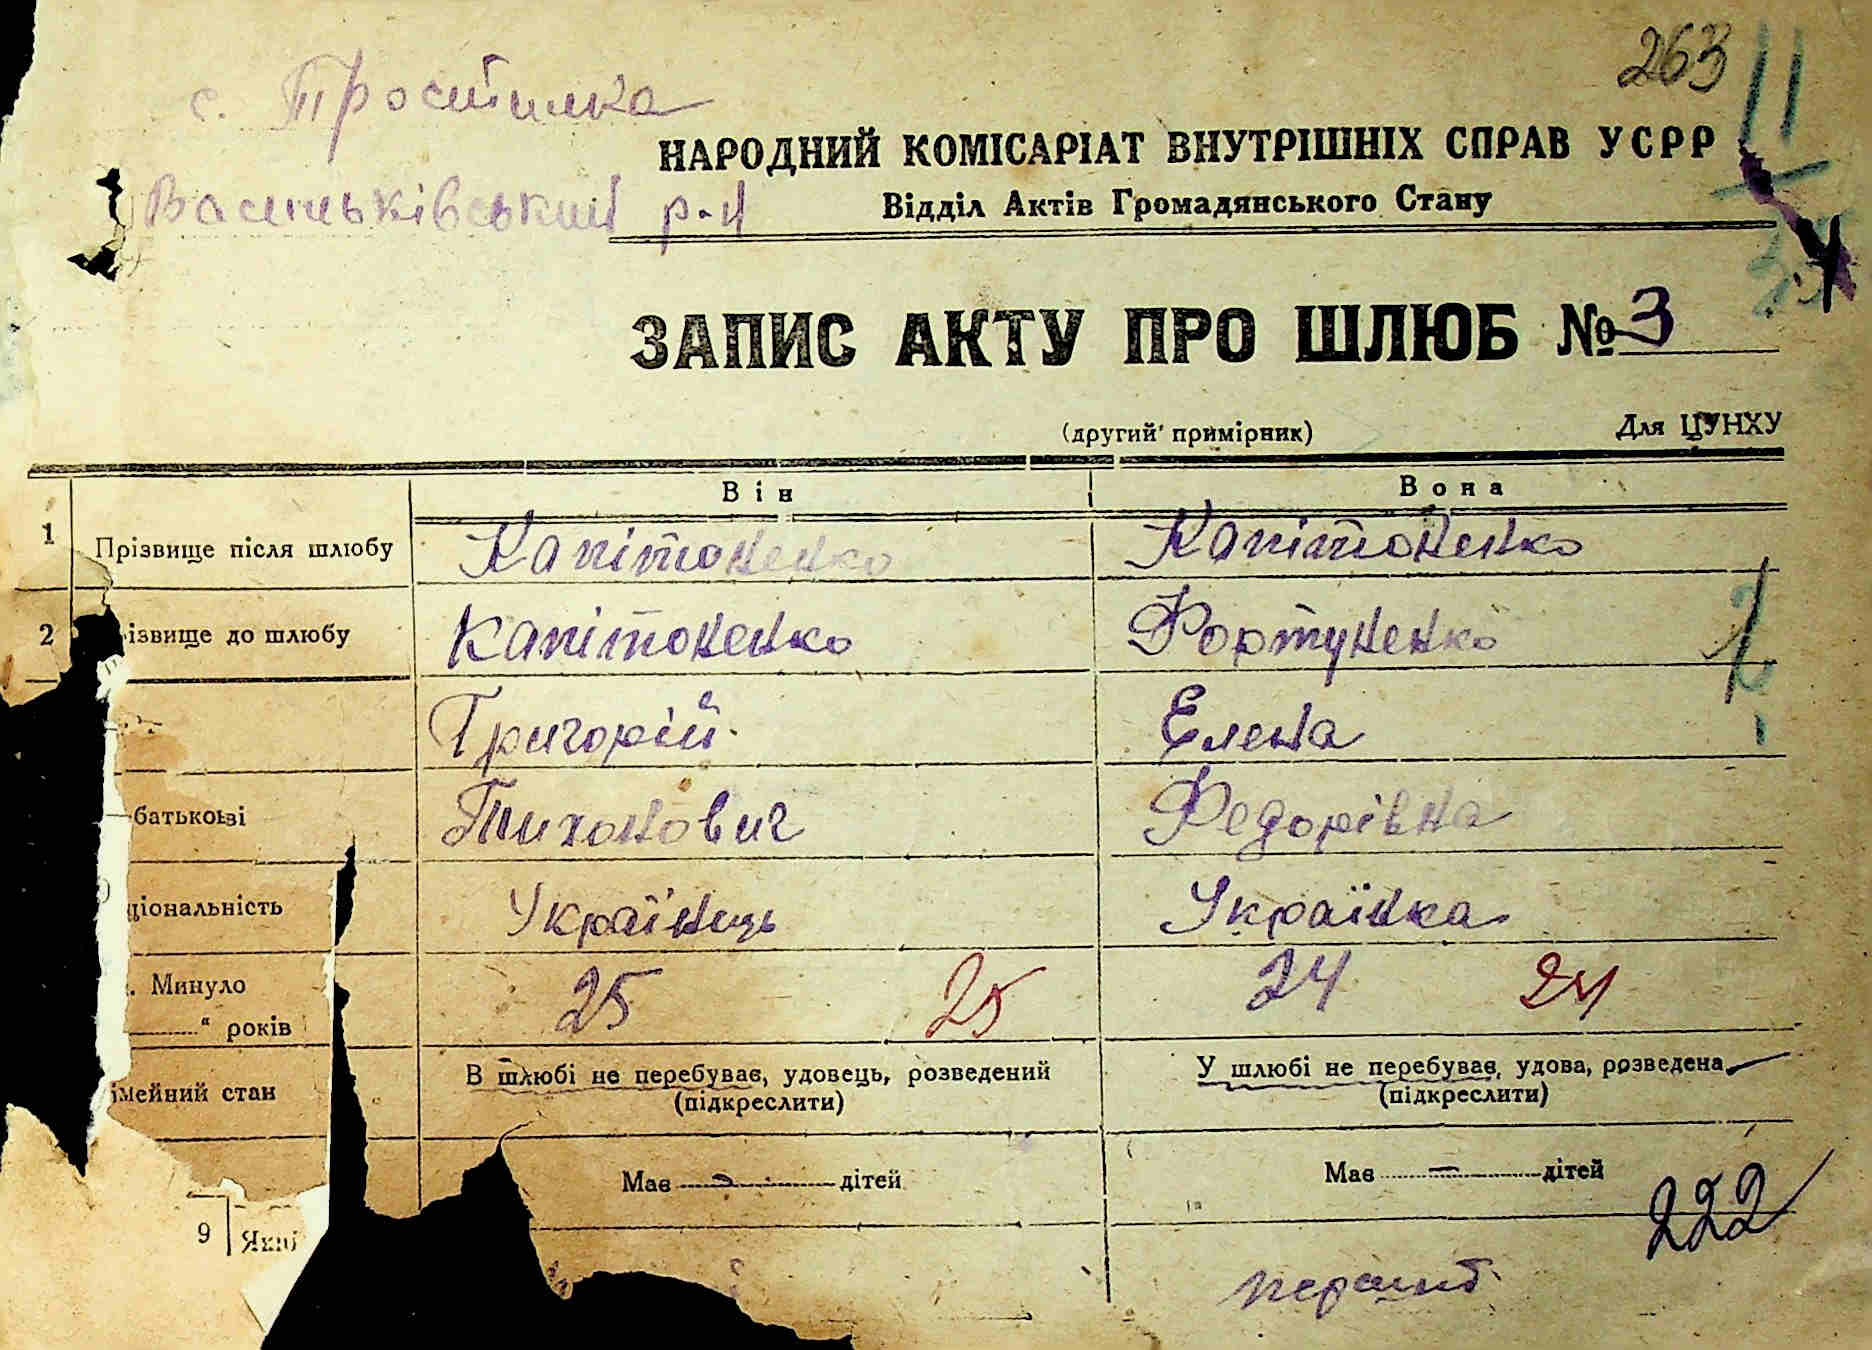 263
11
с. Тростинка
НАРОДНИЙ КОМІСАРІАТ ВНУТРІШНІХ СПРАВ УСРР
Васильківський р-н
Відділ Актів Громадянського Стану
ЗАПИС АКТУ ПРО ШЛЮБ № 3
(другий примірник) Для ЦУНХУ
Він Вона
1 Прізвище після шлюбу Капітоненко Капітоненко
2 ізвище до шлюбу Капітоненко Фортуненко
Григорій Елена
батькові Тихонович Федорівна
ціональність Українець Українка
Минуло 25 25 24 24
" років
імейний стан В шлюбі не перебуває, удовець, розведений У шлюбі не перебуває, удова, розведена
(підкреслити) (підкреслити)
Має - дітей Має - дітей
222
9 Який
перший